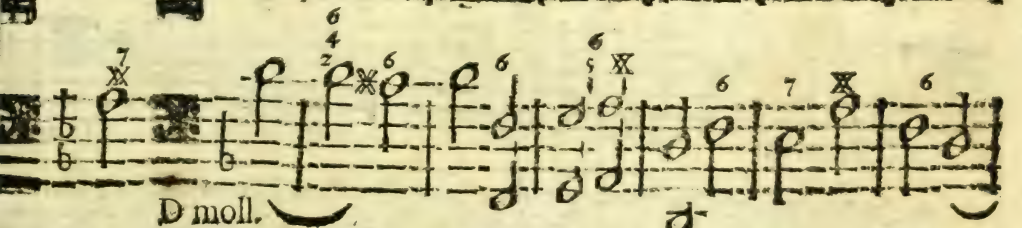 6
4
7 2 6 6 6 5 6 7 6
D moll.